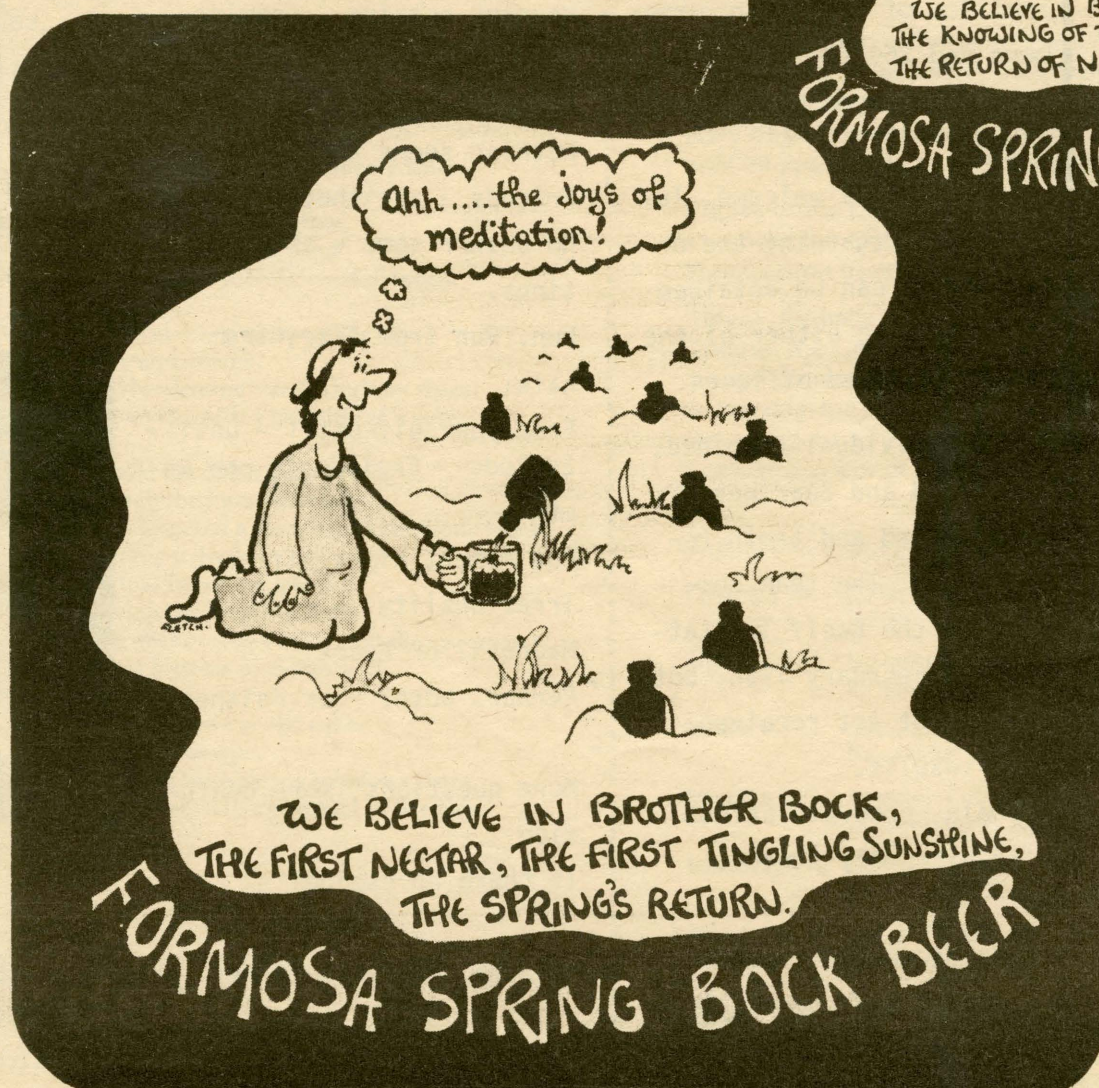 WE BELIEVE IN
THE KNOWING OF
THE RETURN OF
FORMOSA SPRING
Ahh....the joys of
meditation!
FLETCH.
WE BELIEVE IN BROTHER BOCK,
THE FIRST NECTAR, THE FIRST TINGLING SUNSHINE,
THE SPRING'S RETURN.
FORMOSA SPRING BOCK BEER